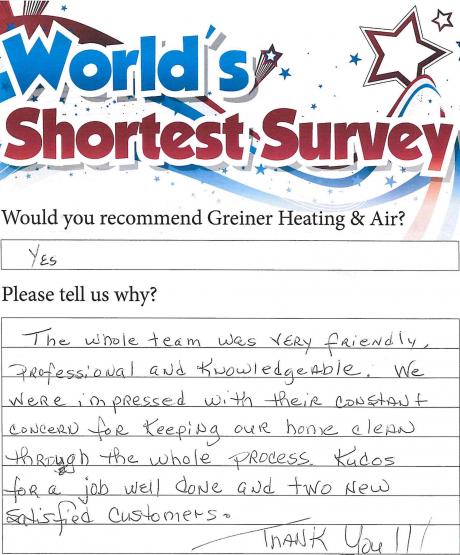 World's
Shortest Survey
Would you recommend Greiner Heating & Air?
Yes
Please tell us why?
The whole team was very friendly,
professional and knowledgeable. We
were impressed with their constant
concern for keeping our home clean
through the whole process. Kudos
for a job well done and two new
satisfied customers.
Thank You!!!